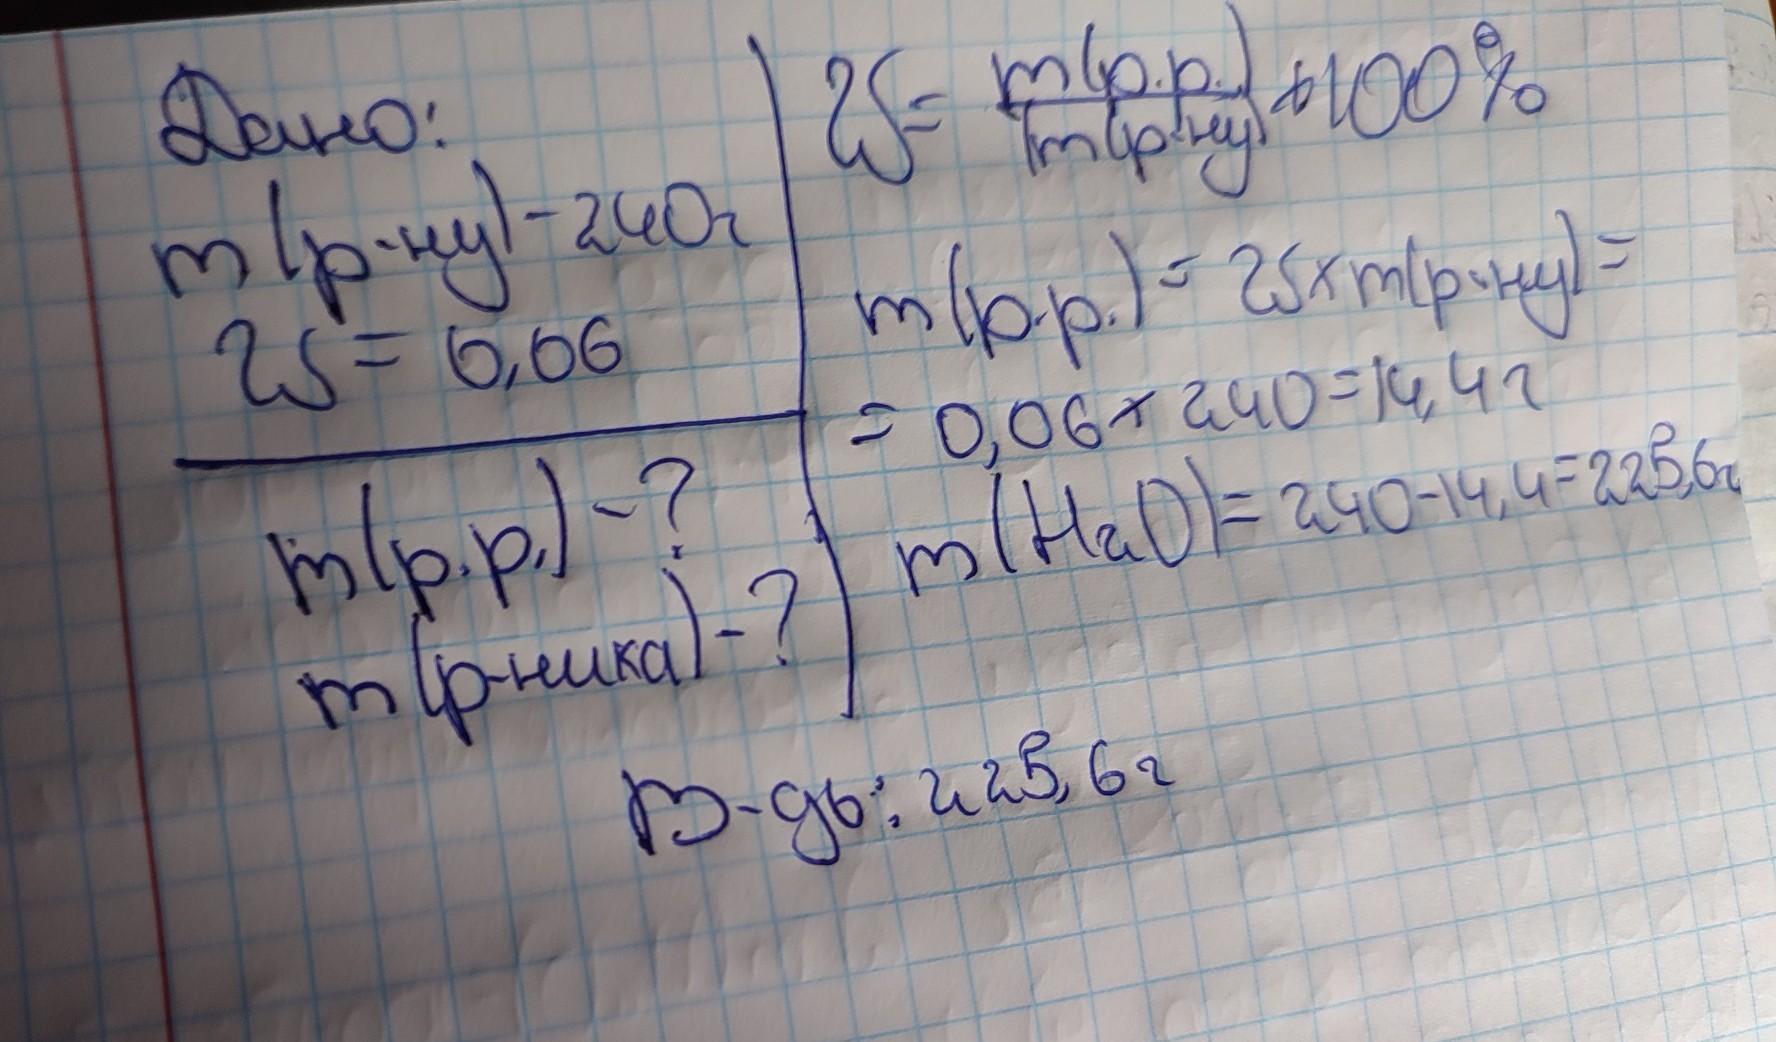 Дано:
m(р-ну) - 240г
W = 0,06
m(р.р.) - ?
m(р-ника) - ?
W = m(р.р.) / m(р-ну) * 100%
m(р.р.) = W × m(р-ну) =
= 0,06 × 240 = 14,4 г
m(H2O) = 240 - 14,4 = 225,6г
В-дь: 225,6 г